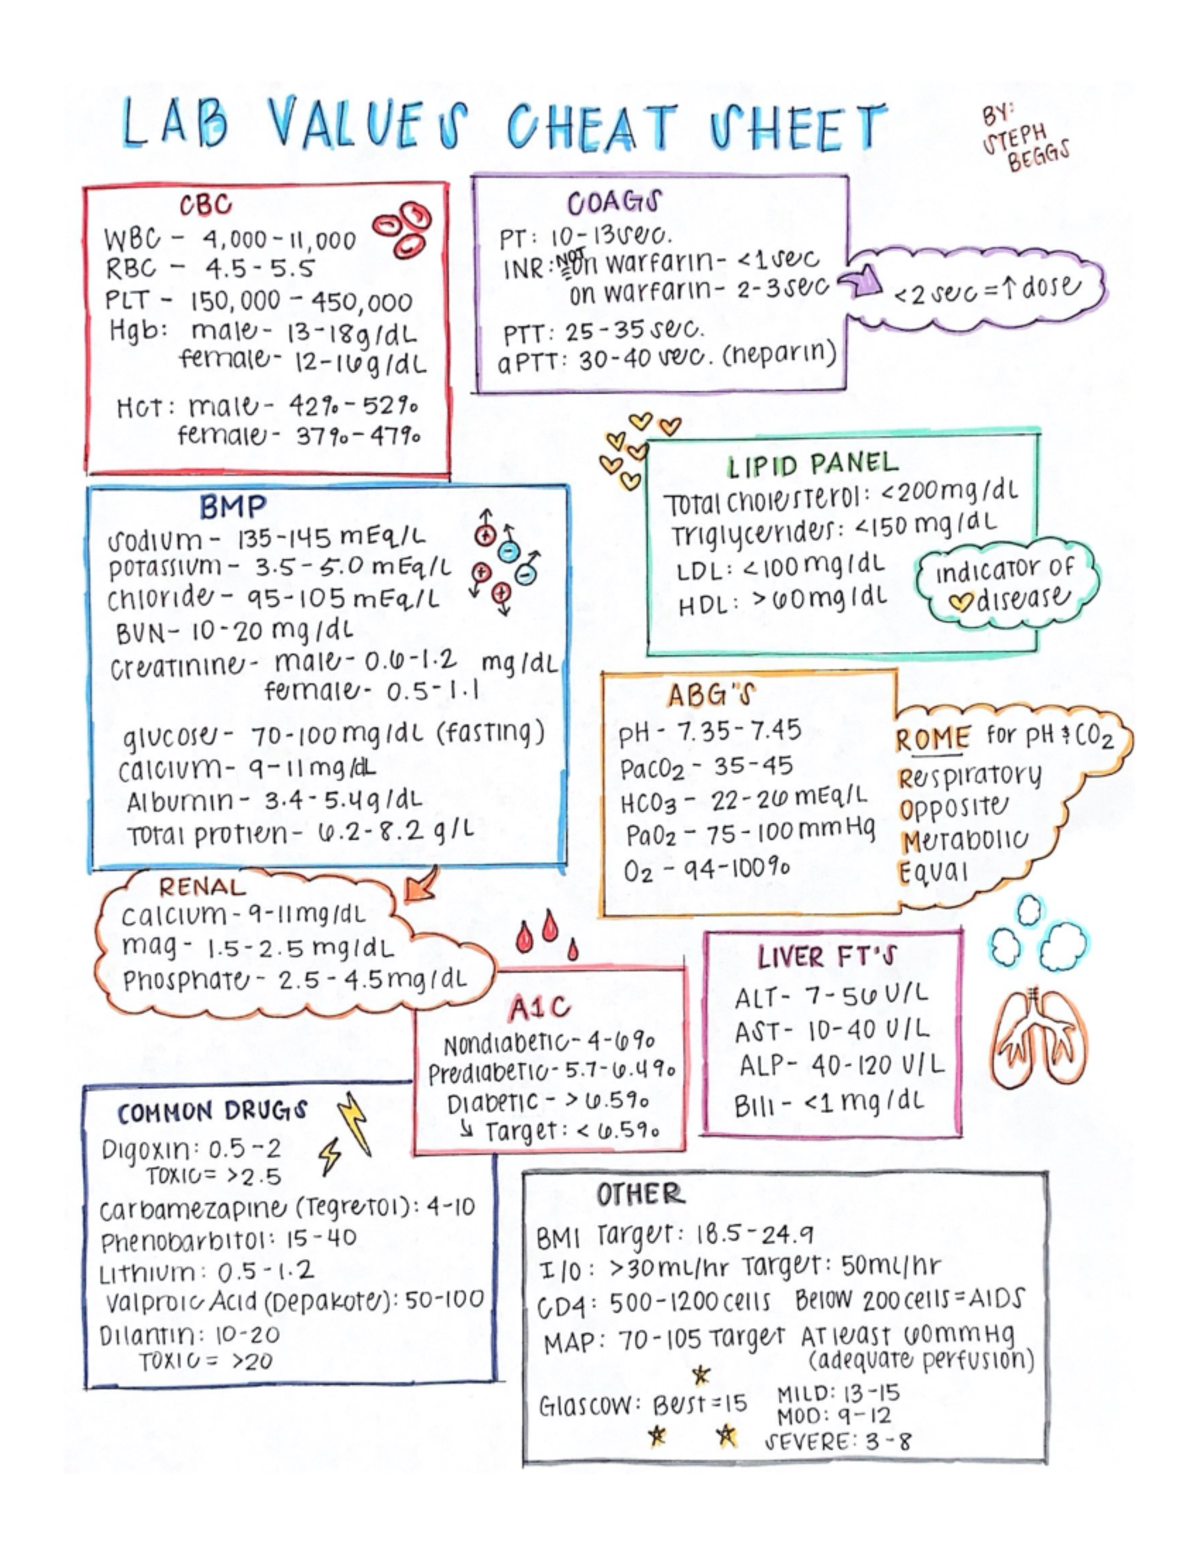 LAB VALUES CHEAT SHEET
BY:
STEPH
BEGGS
CBC
WBC - 4,000-11,000
RBC - 4.5-5.5
PLT - 150,000 - 450,000
Hgb: male- 13-18g/dL
female- 12-16g/dL
Hct: male- 42%-52%
female- 37%-47%
COAGS
PT: 10-13sec.
INR: NOT on warfarin- <1sec
on warfarin- 2-3sec
<2 sec=↑dose
PTT: 25-35 sec.
aPTT: 30-40 sec. (heparin)
LIPID PANEL
Total cholesterol: <200mg/dL
Triglycerides: <150 mg/dL
LDL: <100mg/dL
HDL: >60mg/dL
indicator of
disease
BMP
sodium- 135-145 mEq/L
potassium- 3.5-5.0 mEq/L
chloride- 95-105 mEq/L
BUN- 10-20 mg/dL
creatinine- male- 0.6-1.2 mg/dL
female- 0.5-1.1
glucose- 70-100mg/dL (fasting)
calcium- 9-11mg/dL
Albumin- 3.4-5.4g/dL
Total protien- 6.2-8.2 g/L
ABG'S
pH- 7.35-7.45
PaCO2- 35-45
HCO3- 22-26 mEq/L
PaO2- 75-100 mmHg
O2- 94-100%
ROME for pH & CO2
Respiratory
Opposite
Metabolic
Equal
RENAL
calcium-9-11mg/dL
mag- 1.5-2.5 mg/dL
Phosphate- 2.5-4.5mg/dL
A1C
Nondiabetic-4-6%
Prediabetic-5.7-6.4%
Diabetic- >6.5%
↳ Target: <6.5%
LIVER FT'S
ALT- 7-56 U/L
AST- 10-40 U/L
ALP- 40-120 U/L
Bili- <1 mg/dL
COMMON DRUGS
Digoxin: 0.5-2
TOXIC= >2.5
carbamezapine (Tegretol): 4-10
Phenobarbitol: 15-40
Lithium: 0.5-1.2
Valproic Acid (Depakote): 50-100
Dilantin: 10-20
TOXIC= >20
OTHER
BMI Target: 18.5-24.9
I/O: >30mL/hr Target: 50mL/hr
CD4: 500-1200cells Below 200cells=AIDS
MAP: 70-105 Target At least 60mmHg
(adequate perfusion)
Glascow: Best=15 MILD: 13-15
MOD: 9-12
SEVERE: 3-8